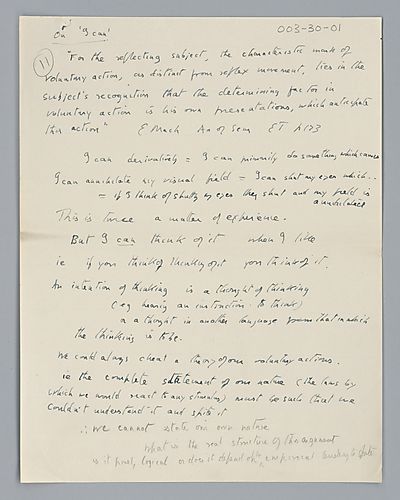 003-30-01
On 'I can'
11
For the reflecting subject, the characteristic mark of
voluntary action, as distinct from reflex movement, lies in the
subject's recognition that the determining factor in
voluntary action is his own presentations, which anticipate
this action" E Mach An of Sens ET p173
I can derivatively = I can primarily do something which causes
I can annihilate my visual field = I can shut my eyes which..
= if I think of shutting my eyes they shut and my field is
annihilated
This is twice a matter of experience.
But I can think of it when I like
ie if you think of thinking of it you think of it.
An intention of thinking is a thought of thinking
(eg having an instruction to think)
or a thought in another language from that in which
the thinking is to be.
We could always cheat a theory of our voluntary actions.
ie the complete statement of our nature (the laws by
which we would react to any stimulus) must be such that we
couldn't understand it and spite it
∴ we cannot state our own nature
What is the real structure of this argument
is it final, logical or does it depend on empirical